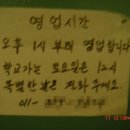 영업시간
오후 1시 부터 영업합니다
학교가는 토요일은 12시
특별한 날은 전화주세요.
011-
17 12